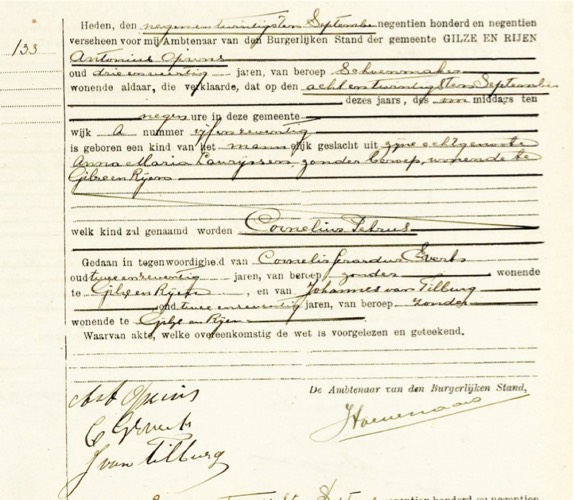 133
Heden, den negenentwintigsten September negentien honderd en negentien
verscheen voor mij Ambtenaar van den Burgerlijken Stand der gemeente GILZE EN RIJEN
Antonius
oud drieenveertig jaren, van beroep Schoenmaker
wonende aldaar, die verklaarde, dat op den achtentwintigsten September
dezes jaars, des middags ten
negen ure in deze gemeente
wijk A nummer vijfenzeventig
is geboren een kind van het mannelijk geslacht uit zijne echtgenoote
Anna Maria Laurijssen, zonder beroep, wonende te
Gilze en Rijen
welk kind zal genaamd worden Cornelius Petrus
Gedaan in tegenwoordigheid van Cornelis Gerardus Everts
oud tweeenzeventig jaren, van beroep zonder wonende
te Gilze en Rijen, en van Johannes van Tilburg
oud tweeenzeventig jaren, van beroep zonder
wonende te Gilze en Rijen
Waarvan akte, welke overeenkomstig de wet is voorgelezen en geteekend.
De Ambtenaar van den Burgerlijken Stand,
J van Tilburg